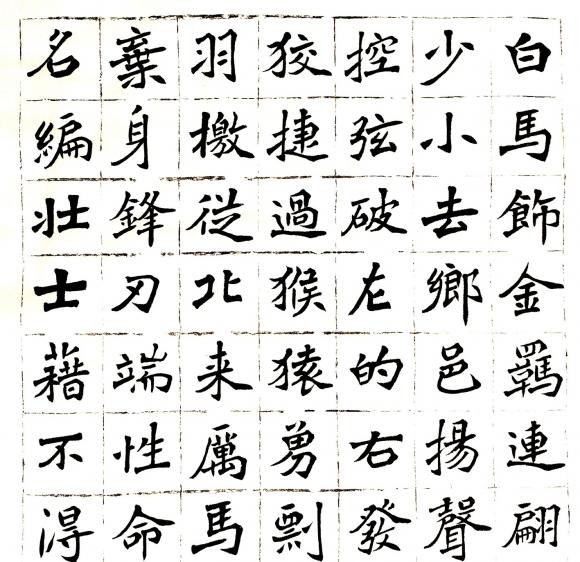 白馬飾金羈連翩
少小去鄉邑揚聲
控弦破左的右發
狡捷過猴猿勇剽
羽檄從北来厲馬
棄身鋒刃端性命
名編壮士藉不淂